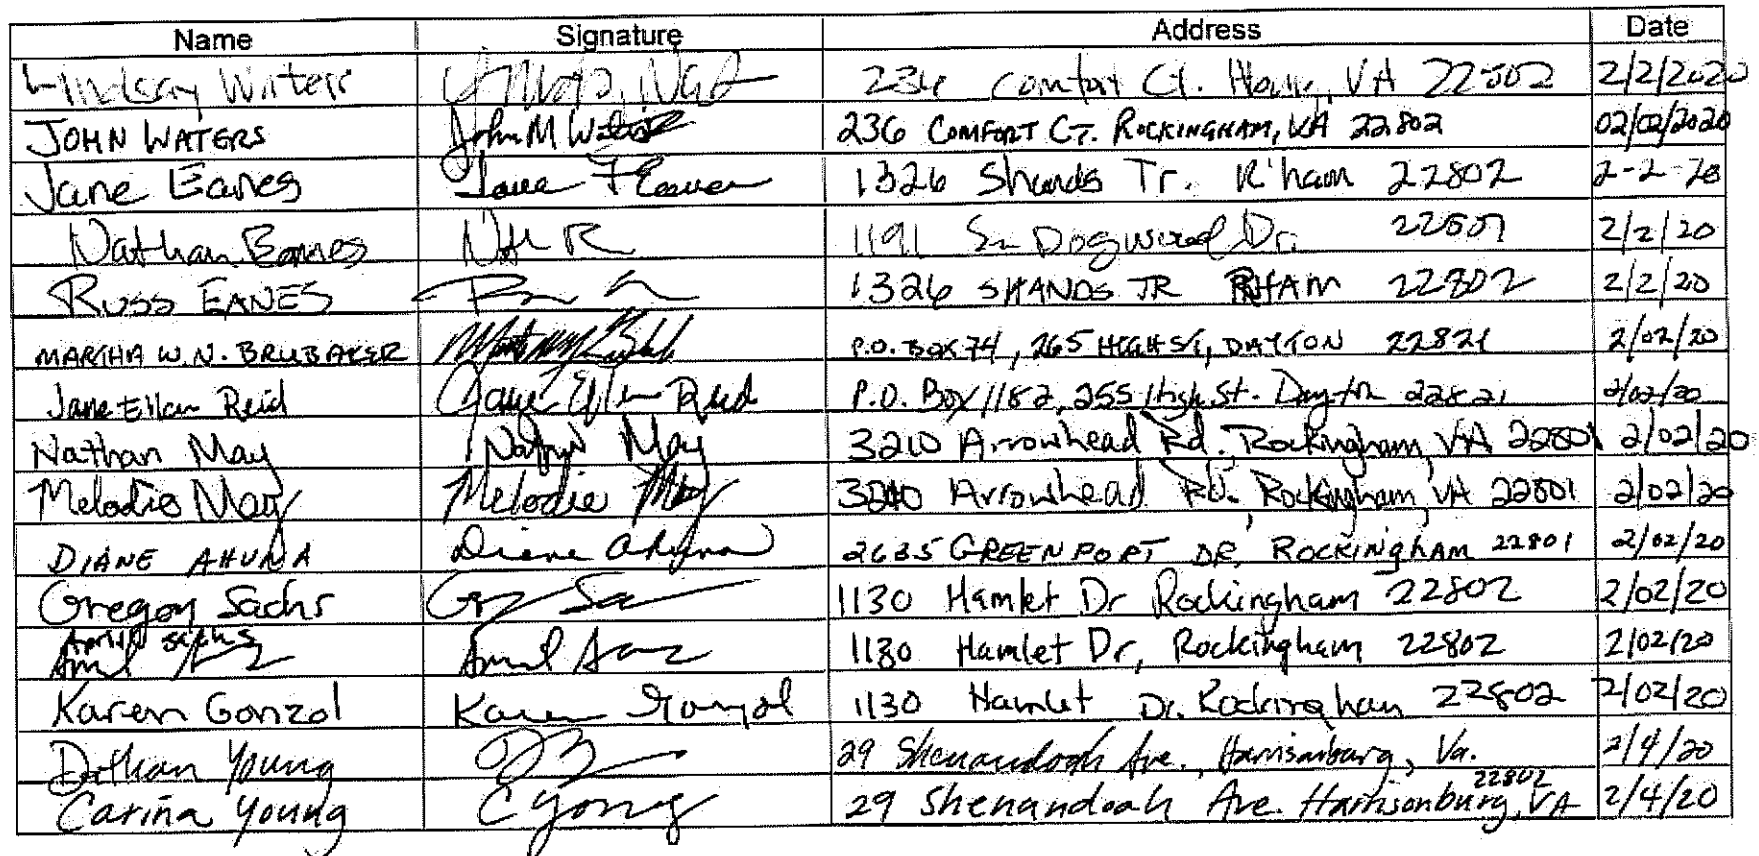 Name Signature Address Date
Lindsay Waters 236 Comfort Ct. VA 22802 2/2/2020
JOHN WATERS John M Waters 236 COMFORT CT. ROCKINGHAM, VA 22802 02/02/2020
Jane Eanes Jane Eanes 1326 Shands Tr. R'ham 22802 2-2-20
Nathan Eanes 1191 Dogwood Dr. 2/2/20
RUSS EANES 1326 SHANDS TR RHAM 22802 2/2/20
MARTHA W.N. BRUBAKER P.O. BOX 74, 265 HIGH ST, DAYTON 22821 2/02/20
Jane Ellen Reid Jane Ellen Reid P.O. Box 1182, 255 High St. Dayton 22821 2/02/20
Nathan May Nathan May 3210 Arrowhead Rd. Rockingham, VA 22801 2/02/20
Melodie May Melodie May Arrowhead Rd. Rockingham, VA 22801 2/02/20
DIANE AHUNA Diane Ahuna 2635 GREENPORT DR, ROCKINGHAM 22801 2/02/20
Gregory Sachs 1130 Hamlet Dr Rockingham 22802 2/02/20
April Sachs
1130 Hamlet Dr, Rockingham 22802 2/02/20
Karen Gonzol Karen Gonzol 1130 Hamlet Dr. Rockingham 22802 2/02/20
Dathan Young 29 Shenandoah Ave., Harrisonburg, Va. 2/4/20
22802
Carina Young C Young 29 Shenandoah Ave. Harrisonburg, VA 2/4/20